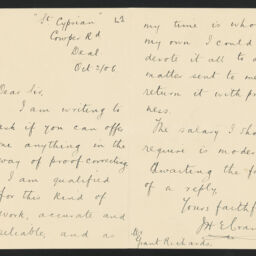 "St Cyprian"
Cowper Rd
Deal
Oct 2/06
Dear Sir,
I am writing to
ask if you can offer
me anything in the
way of proof correcting.
I am qualified
for this kind of
work, accurate and
reliable, and as
my time is who
my own I could
devote it all to a
matter sent to me
return it with pro
ness.
The salary I sho
require is moder
Awaiting the fa
of a reply,
Yours faithf
Grant Richards.